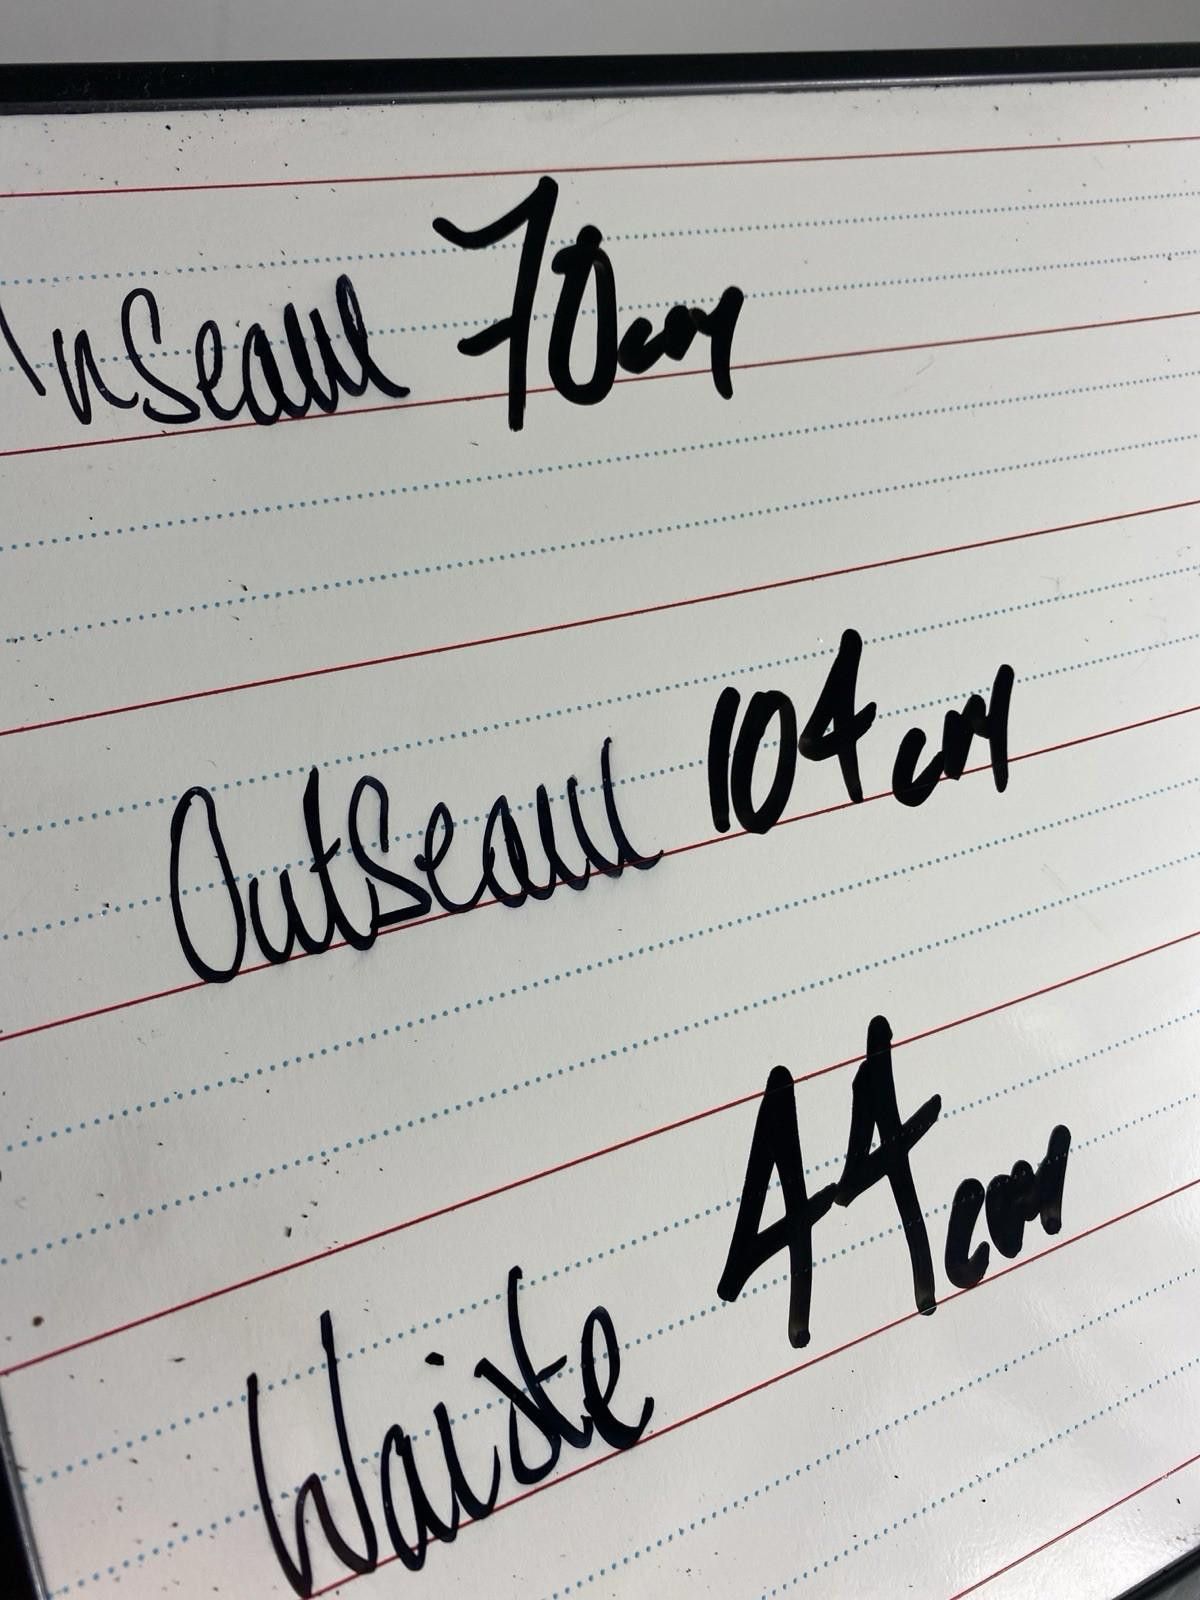 Inseam 70cm
Outseam 104cm
Waiste 44cm